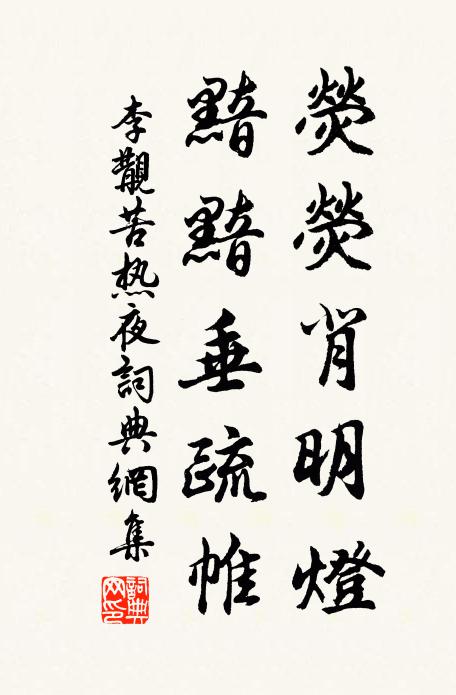 熒熒肖明燈
黯黯垂疏帷
李覯苦热夜詞典網集
詞典
网印